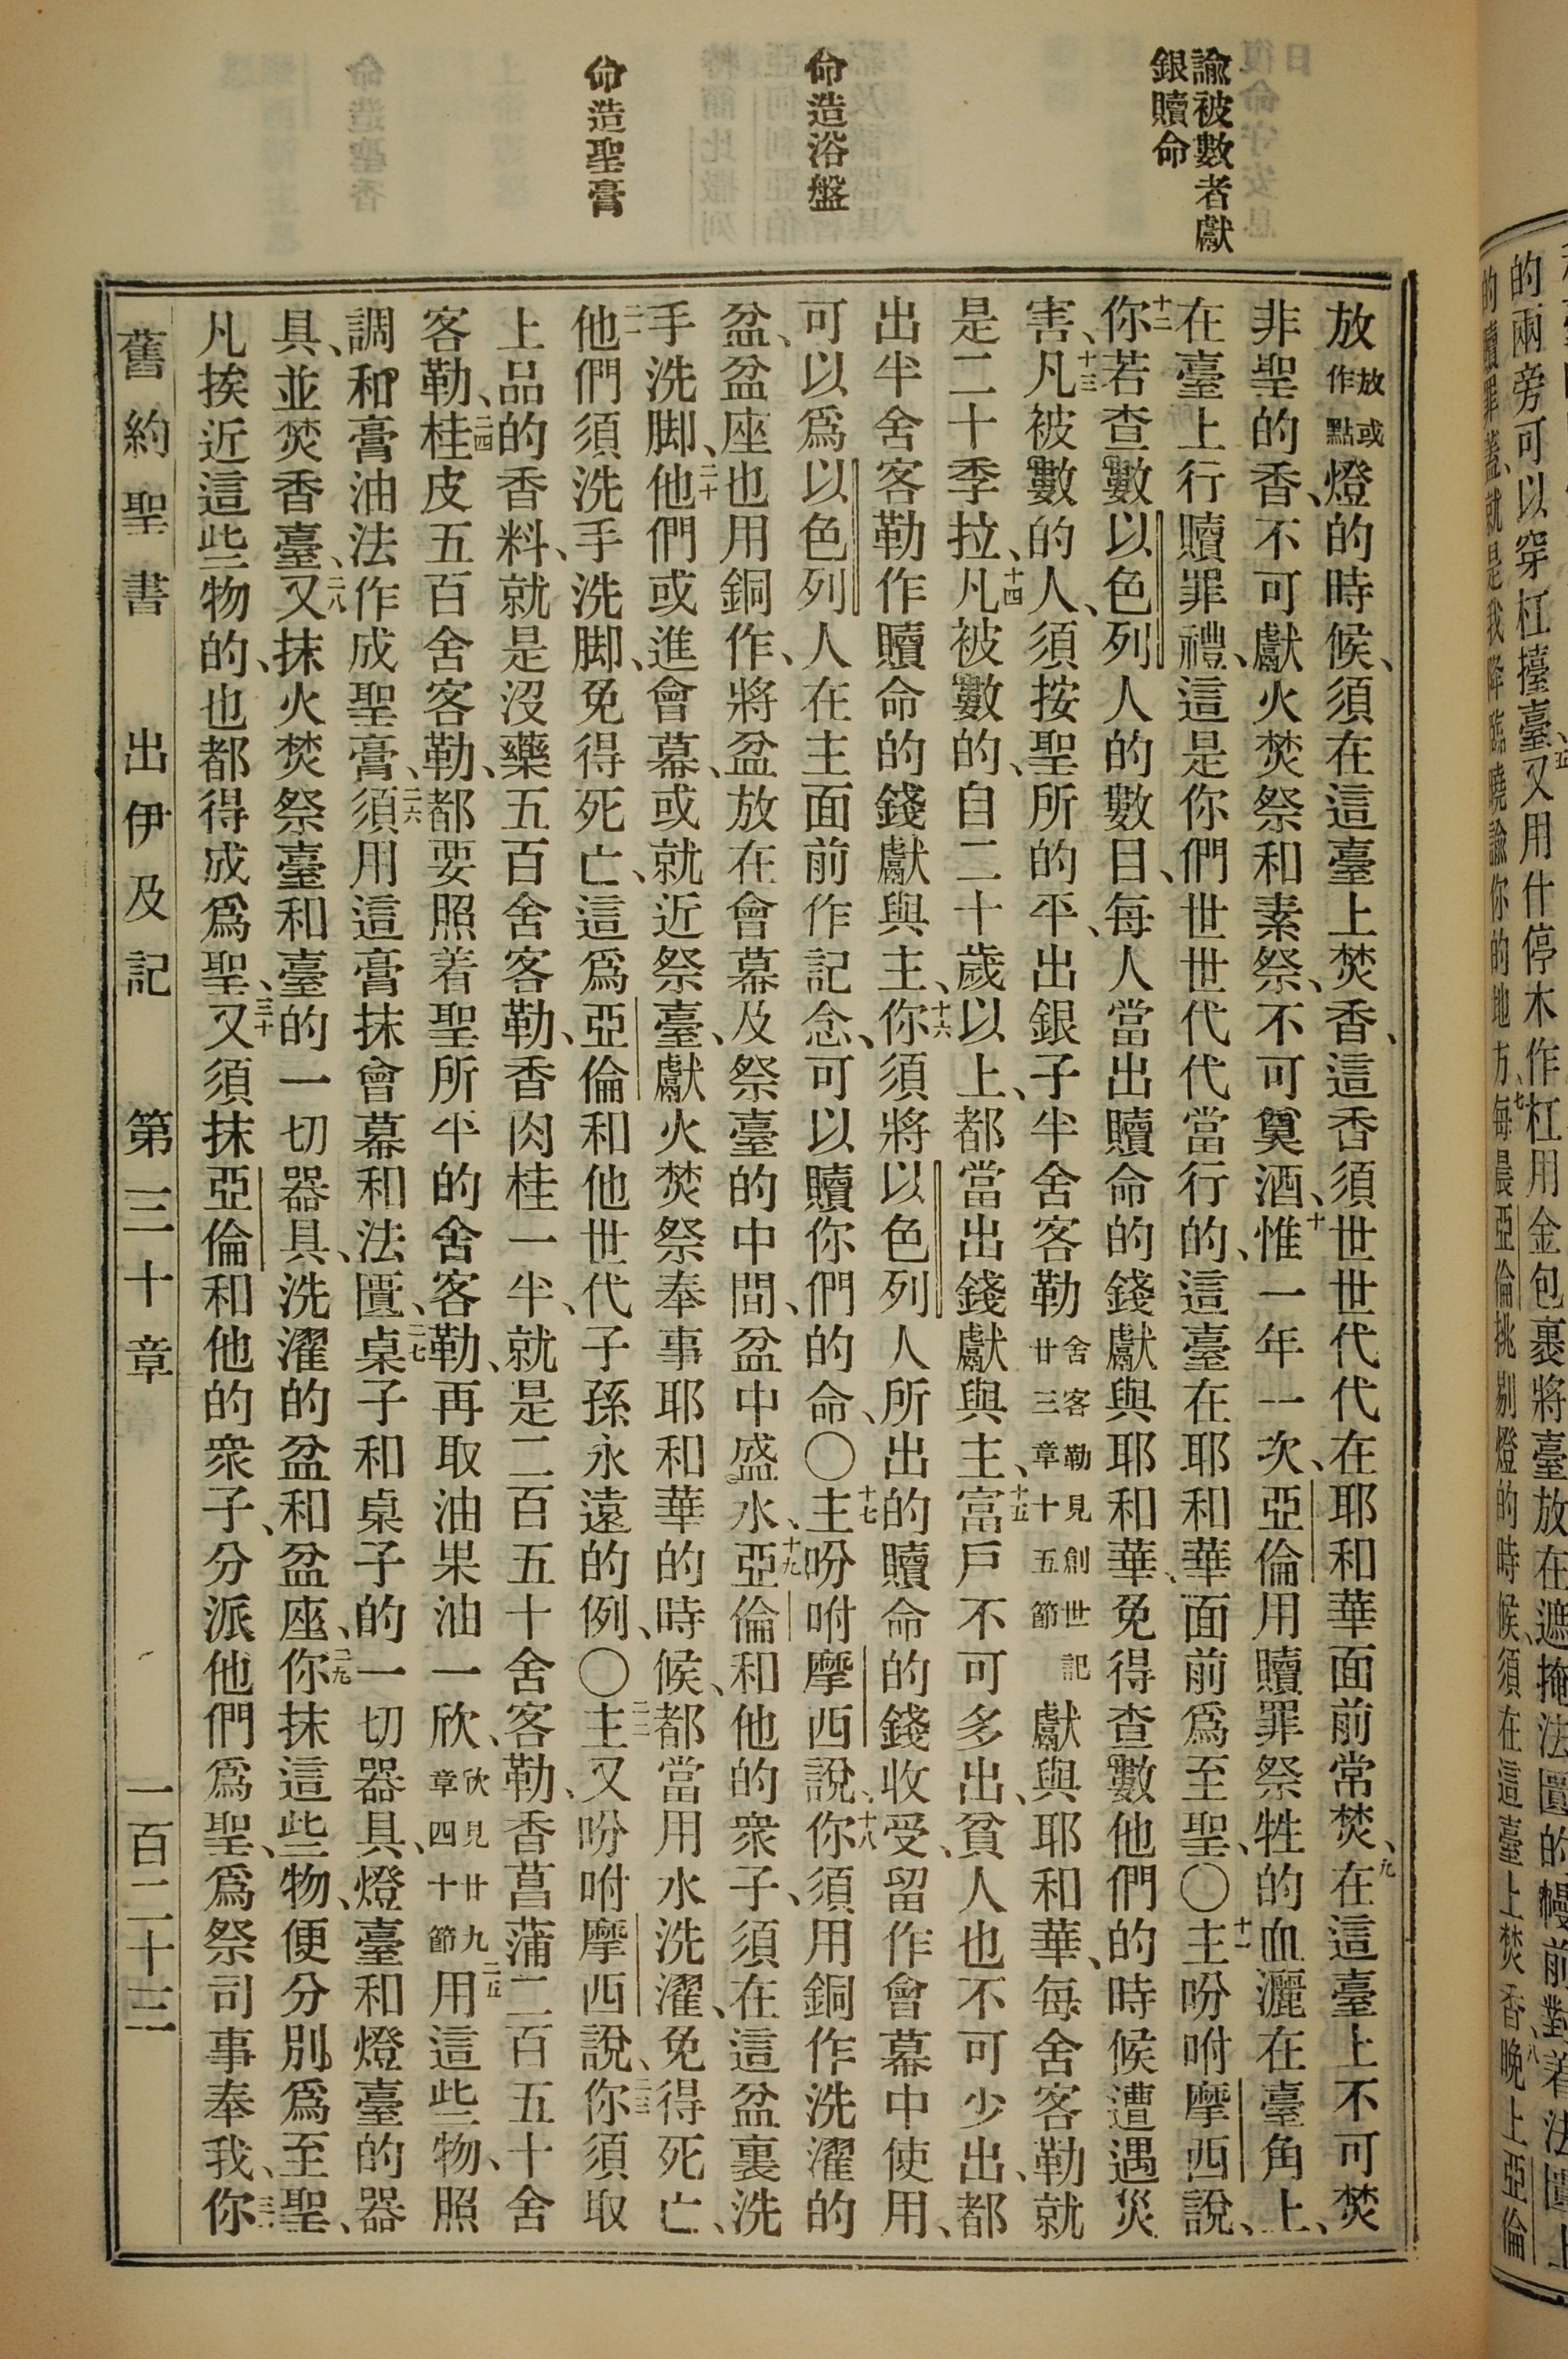 諭被數者獻
銀贖命
命造浴盤
命造聖膏
放放或作點燈的時候、須在這臺上焚香、這香須世世代代在耶和華面前常焚、九在這臺上不可焚
非聖的香、不可獻火焚祭和素祭、不可奠酒、十惟一年一次、亞倫用贖罪祭牲的血灑在臺角上、
在臺上行贖罪禮、這是你們世世代代當行的、這臺在耶和華面前爲至聖、〇十一主吩咐摩西說、
十二你若查數以色列人的數目、每人當出贖命的錢獻與耶和華、免得查數他們的時候遭遇災
害、十三凡被數的人、須按聖所的平、出銀子半舍客勒舍客勒見創世記廿三章十五節獻與耶和華、每舍客勒就
是二十季拉、十四凡被數的、自二十歲以上、都當出錢獻與主、十五富戶不可多出、貧人也不可少出、都
出半舍客勒作贖命的錢獻與主、十六你須將以色列人所出的贖命的錢收受、留作會幕中使用、
可以爲以色列人在主面前作記念、可以贖你們的命、〇十七主吩咐摩西說、十八你須用銅作洗濯的
盆、盆座也用銅作、將盆放在會幕及祭臺的中間、盆中盛水、十九亞倫和他的衆子、須在這盆裏洗
手洗脚、二十他們或進會幕、或就近祭臺、獻火焚祭奉事耶和華的時候、都當用水洗濯、免得死亡、
二一他們須洗手洗脚、免得死亡、這爲亞倫和他世代子孫永遠的例、〇二二主又吩咐摩西說、二三你須取
上品的香料、就是沒藥五百舍客勒、香肉桂一半、就是二百五十舍客勒、香菖蒲二百五十舍
客勒、二四桂皮五百舍客勒、都要照着聖所平的舍客勒、再取油果油一欣、欣見廿九章四十節二五用這些物、照
調和膏油法作成聖膏、二六須用這膏抹會幕和法匱、二七桌子和桌子的一切器具、燈臺和燈臺的器
具、並焚香臺、二八又抹火焚祭臺和臺的一切器具、洗濯的盆和盆座、二九你抹這些物、便分別爲至聖、
凡挨近這些物的、也都得成爲聖、三十又須抹亞倫和他的衆子、分派他們爲聖、爲祭司事奉我、三一你
舊約聖書　出伊及記　第三十章　一百二十三